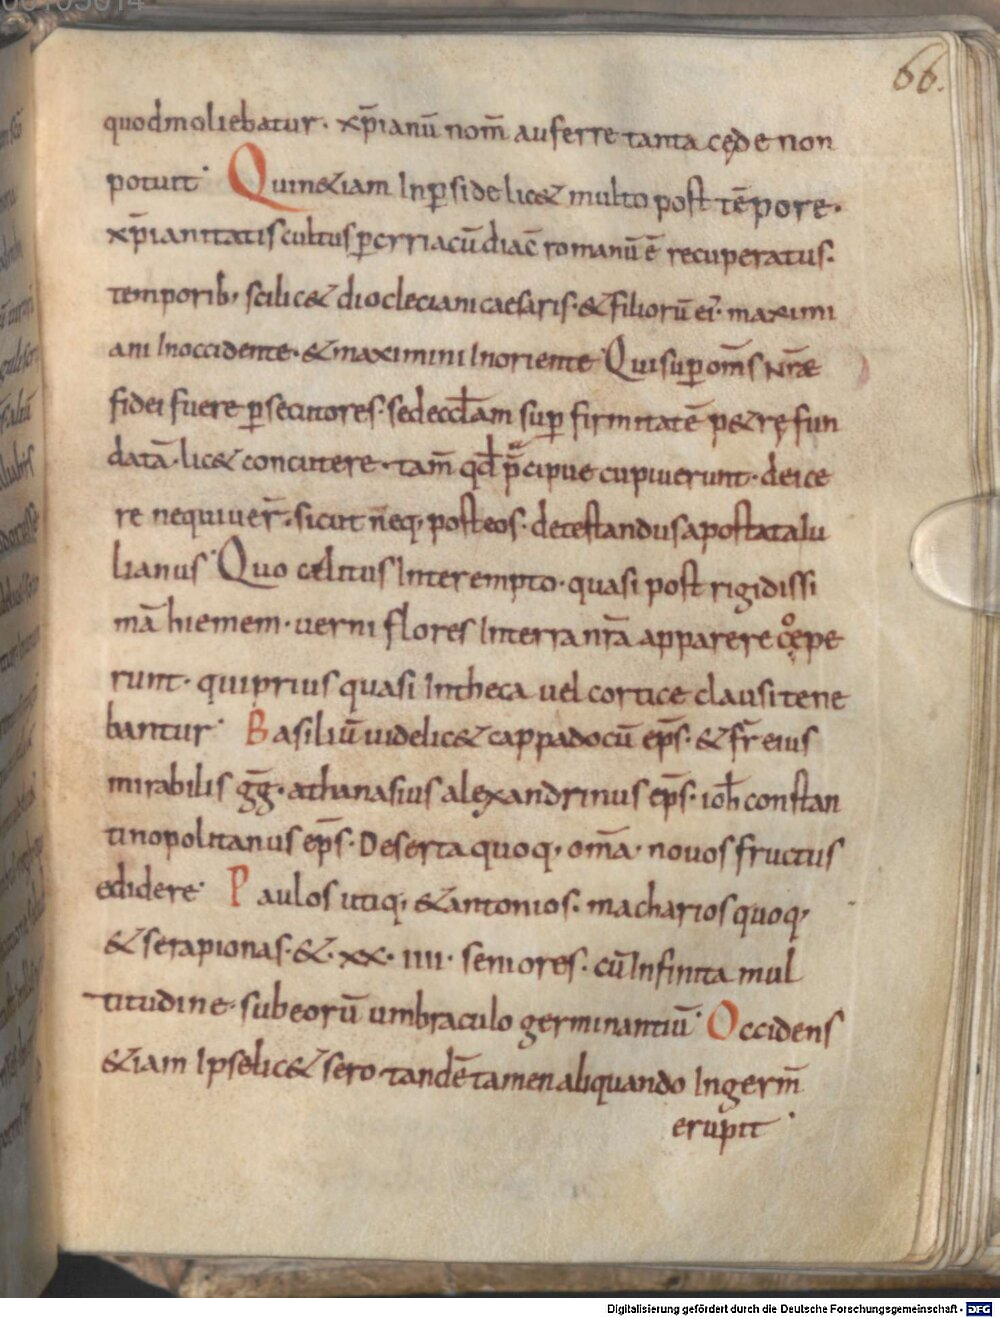 66.
quodmoliebatur· xp̄ianū nom̄ auferre tanta cęde non
potuit· Quin&iam In p̱side lic& multo post tēpore·
xp̄ianitatis cultus p̱cyriacū diac̄ romanū ē recuperatus·
temporib; scilic& diocleciani caesaris· & filiorū ei; maximi
ani Inoccidente· & maximini Inoriente· Qui sup̱ om̄s nr̄ae
fidei fuere p̱secutores· sed eccl̄am sup̱ firmitatē p&rę fun
datā· lic& concutere· tam̄ qd̄ p̄cipue cupiuerunt· deice
re nequiuer̄· sicut neq; post eos· detestandus apostata Iu
lianus· Quo cęlitus Interempto· quasi post rigidissi
mā hiemem· uerni flores Interra nr̄a apparere cępe
runt· qui prius quasi Intheca uel cortice clausi tene
bantur· Basiliū uidelic& cappadocū ep̄s· & fr̄ eius
mirabilis gḡ· athanasius alexandrinus ep̄s· ioh̄ constan
tinopolitanus ep̄s· Deserta quoq; om̄a· nouos fructus
edidere· Paulos utiq; & antonios· macharios quoq;
& serapionas· & ·xx·IIII· seniores· cū Infinita mul
titudine· sub eorū umbraculo germinantiū· Occidens
&iam Ipse lic& sero tandē tamen aliquando In germ̄
erupit·
Digitalisierung gefördert durch die Deutsche Forschungsgemeinschaft · DFG